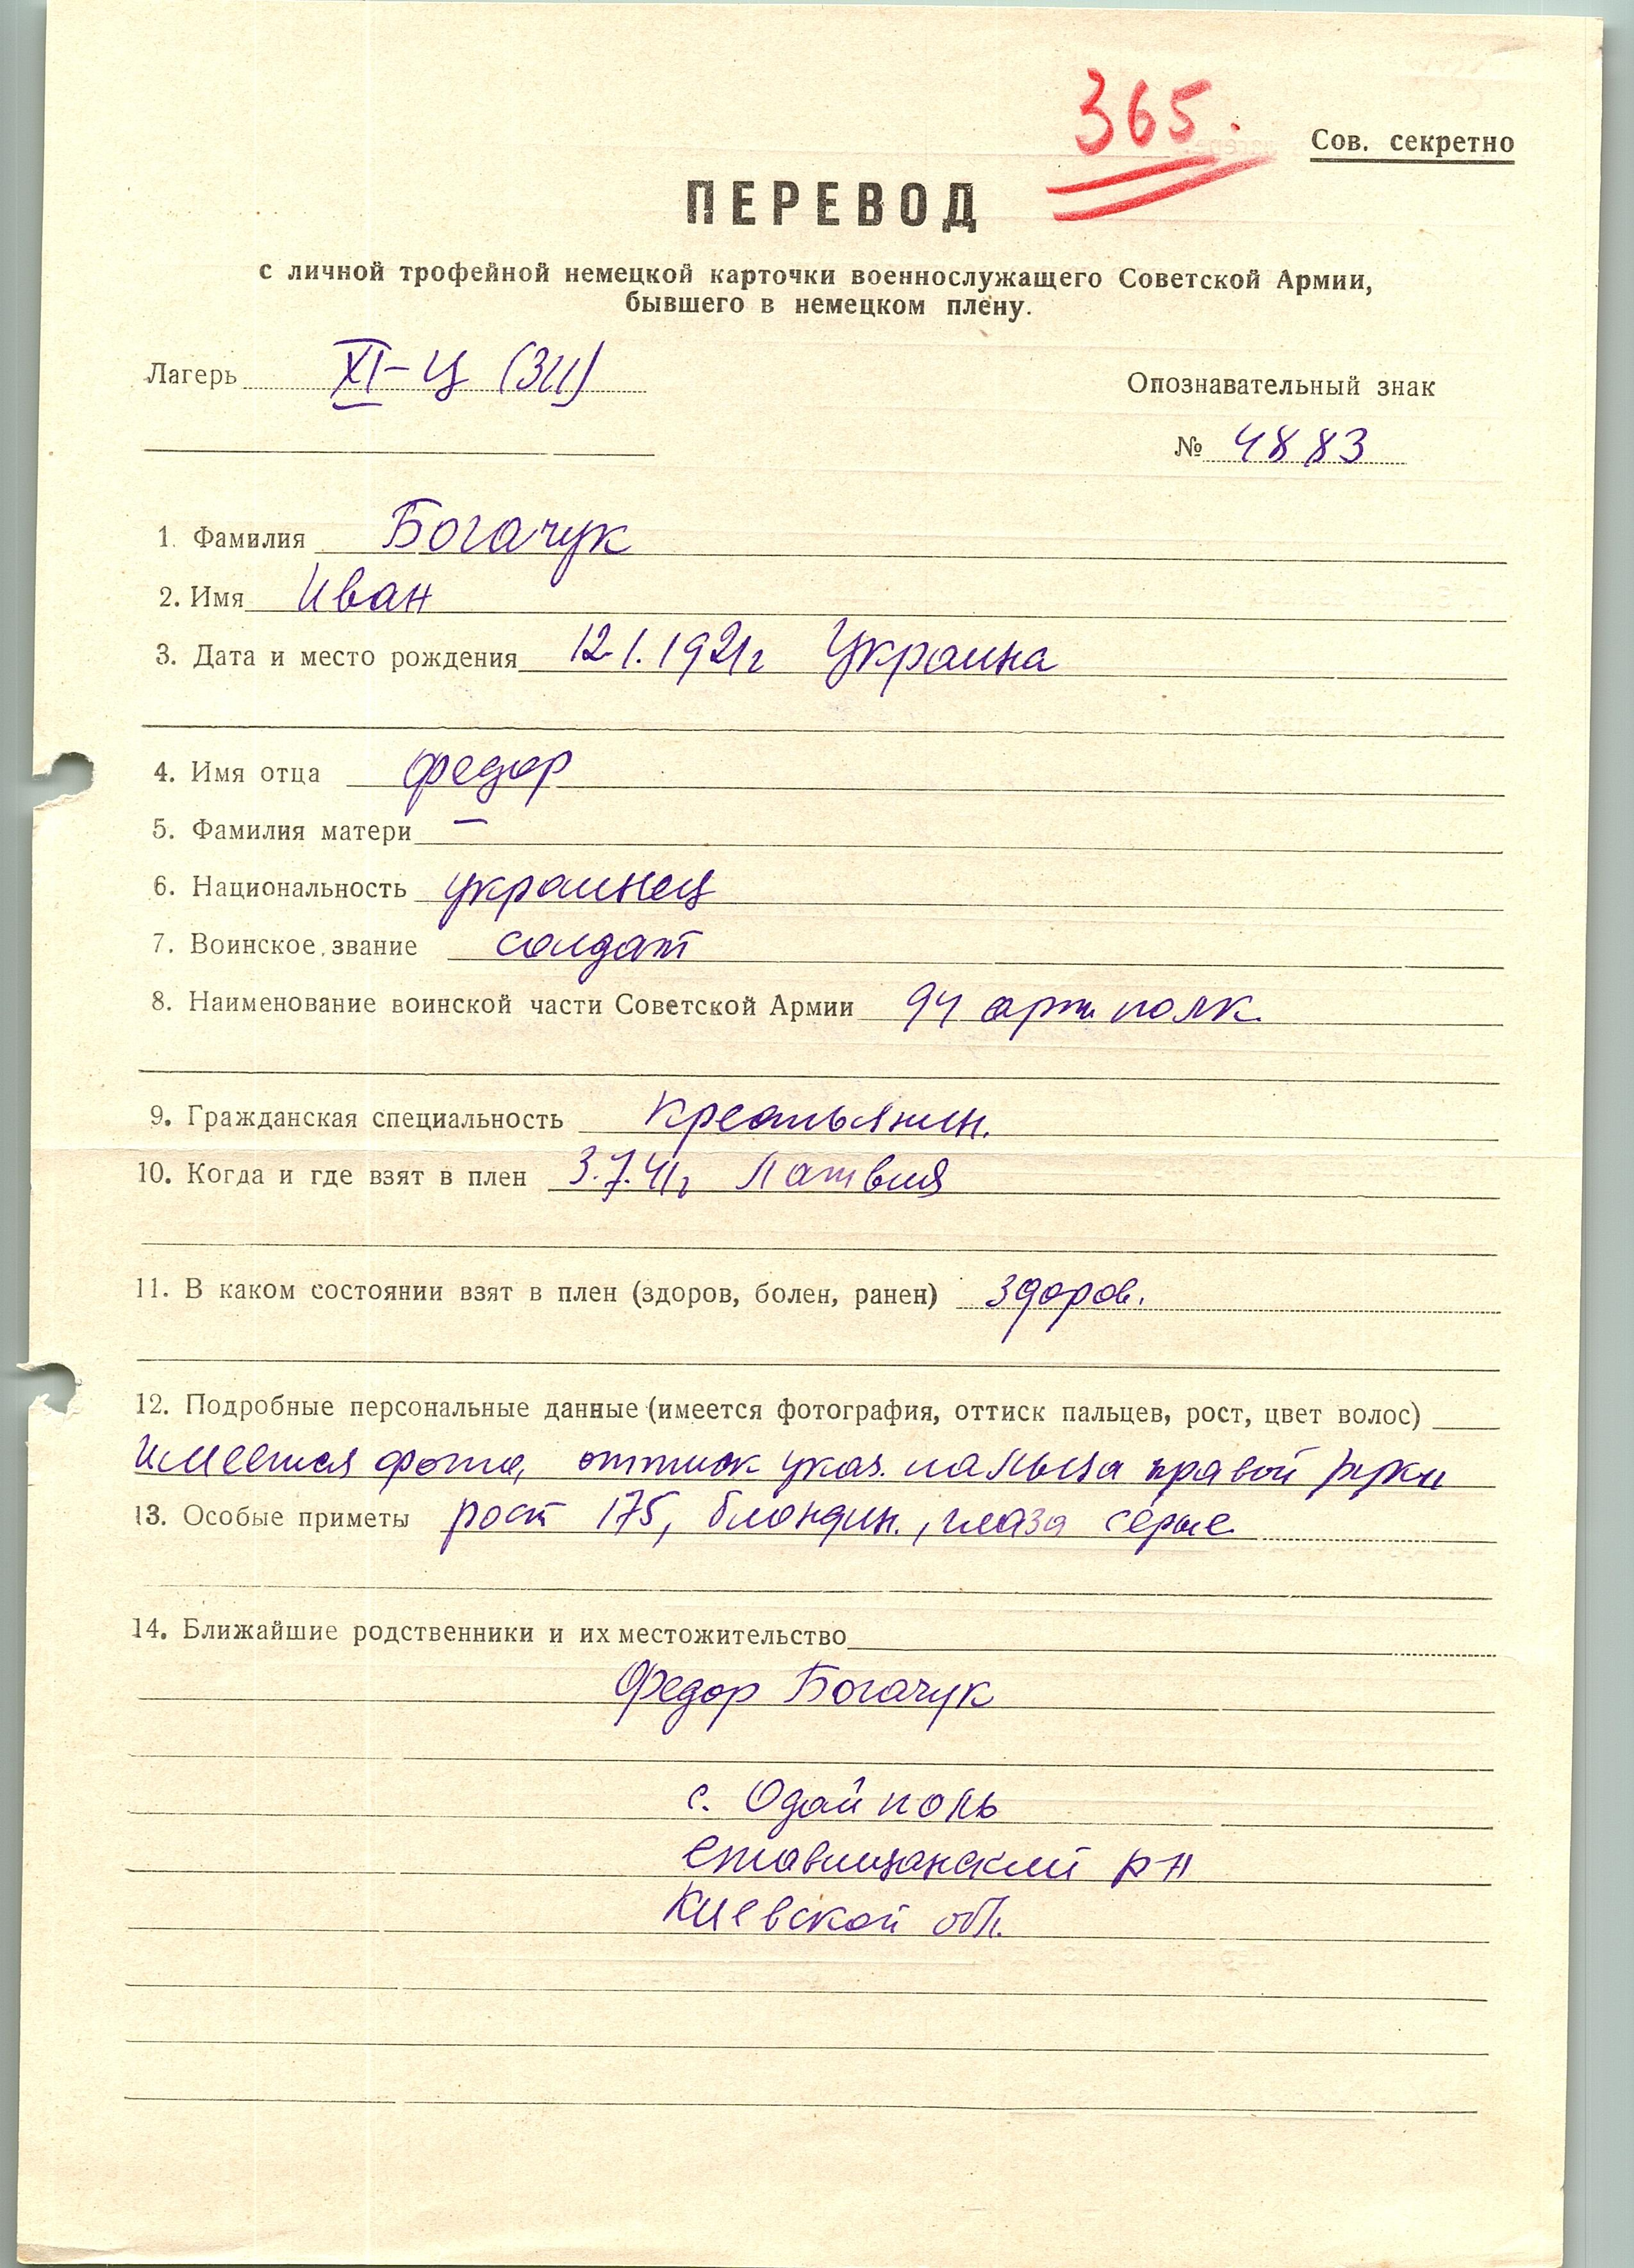 365.
Сов. секретно
ПЕРЕВОД
с личной трофейной немецкой карточки военнослужащего Советской Армии,
бывшего в немецком плену.
Лагерь XI-Ц (311)
Опознавательный знак
№ 4883
1. Фамилия Богачук
2. Имя Иван
3. Дата и место рождения 12.1.1921г Украина
4. Имя отца Федор
5. Фамилия матери —
6. Национальность украинец
7. Воинское звание солдат
8. Наименование воинской части Советской Армии 94 арт полк.
9. Гражданская специальность Крестьянин.
10. Когда и где взят в плен 3.7.41г Латвия
11. В каком состоянии взят в плен (здоров, болен, ранен) здоров.
12. Подробные персональные данные (имеется фотография, оттиск пальцев, рост, цвет волос)
Имеется фото, оттиск указ. пальца правой руки
13. Особые приметы рост 175, блондин., глаза серые
14. Ближайшие родственники и их местожительство
Федор Богачук
с. Одайполь
Ставищанский р-н
Киевской обл.